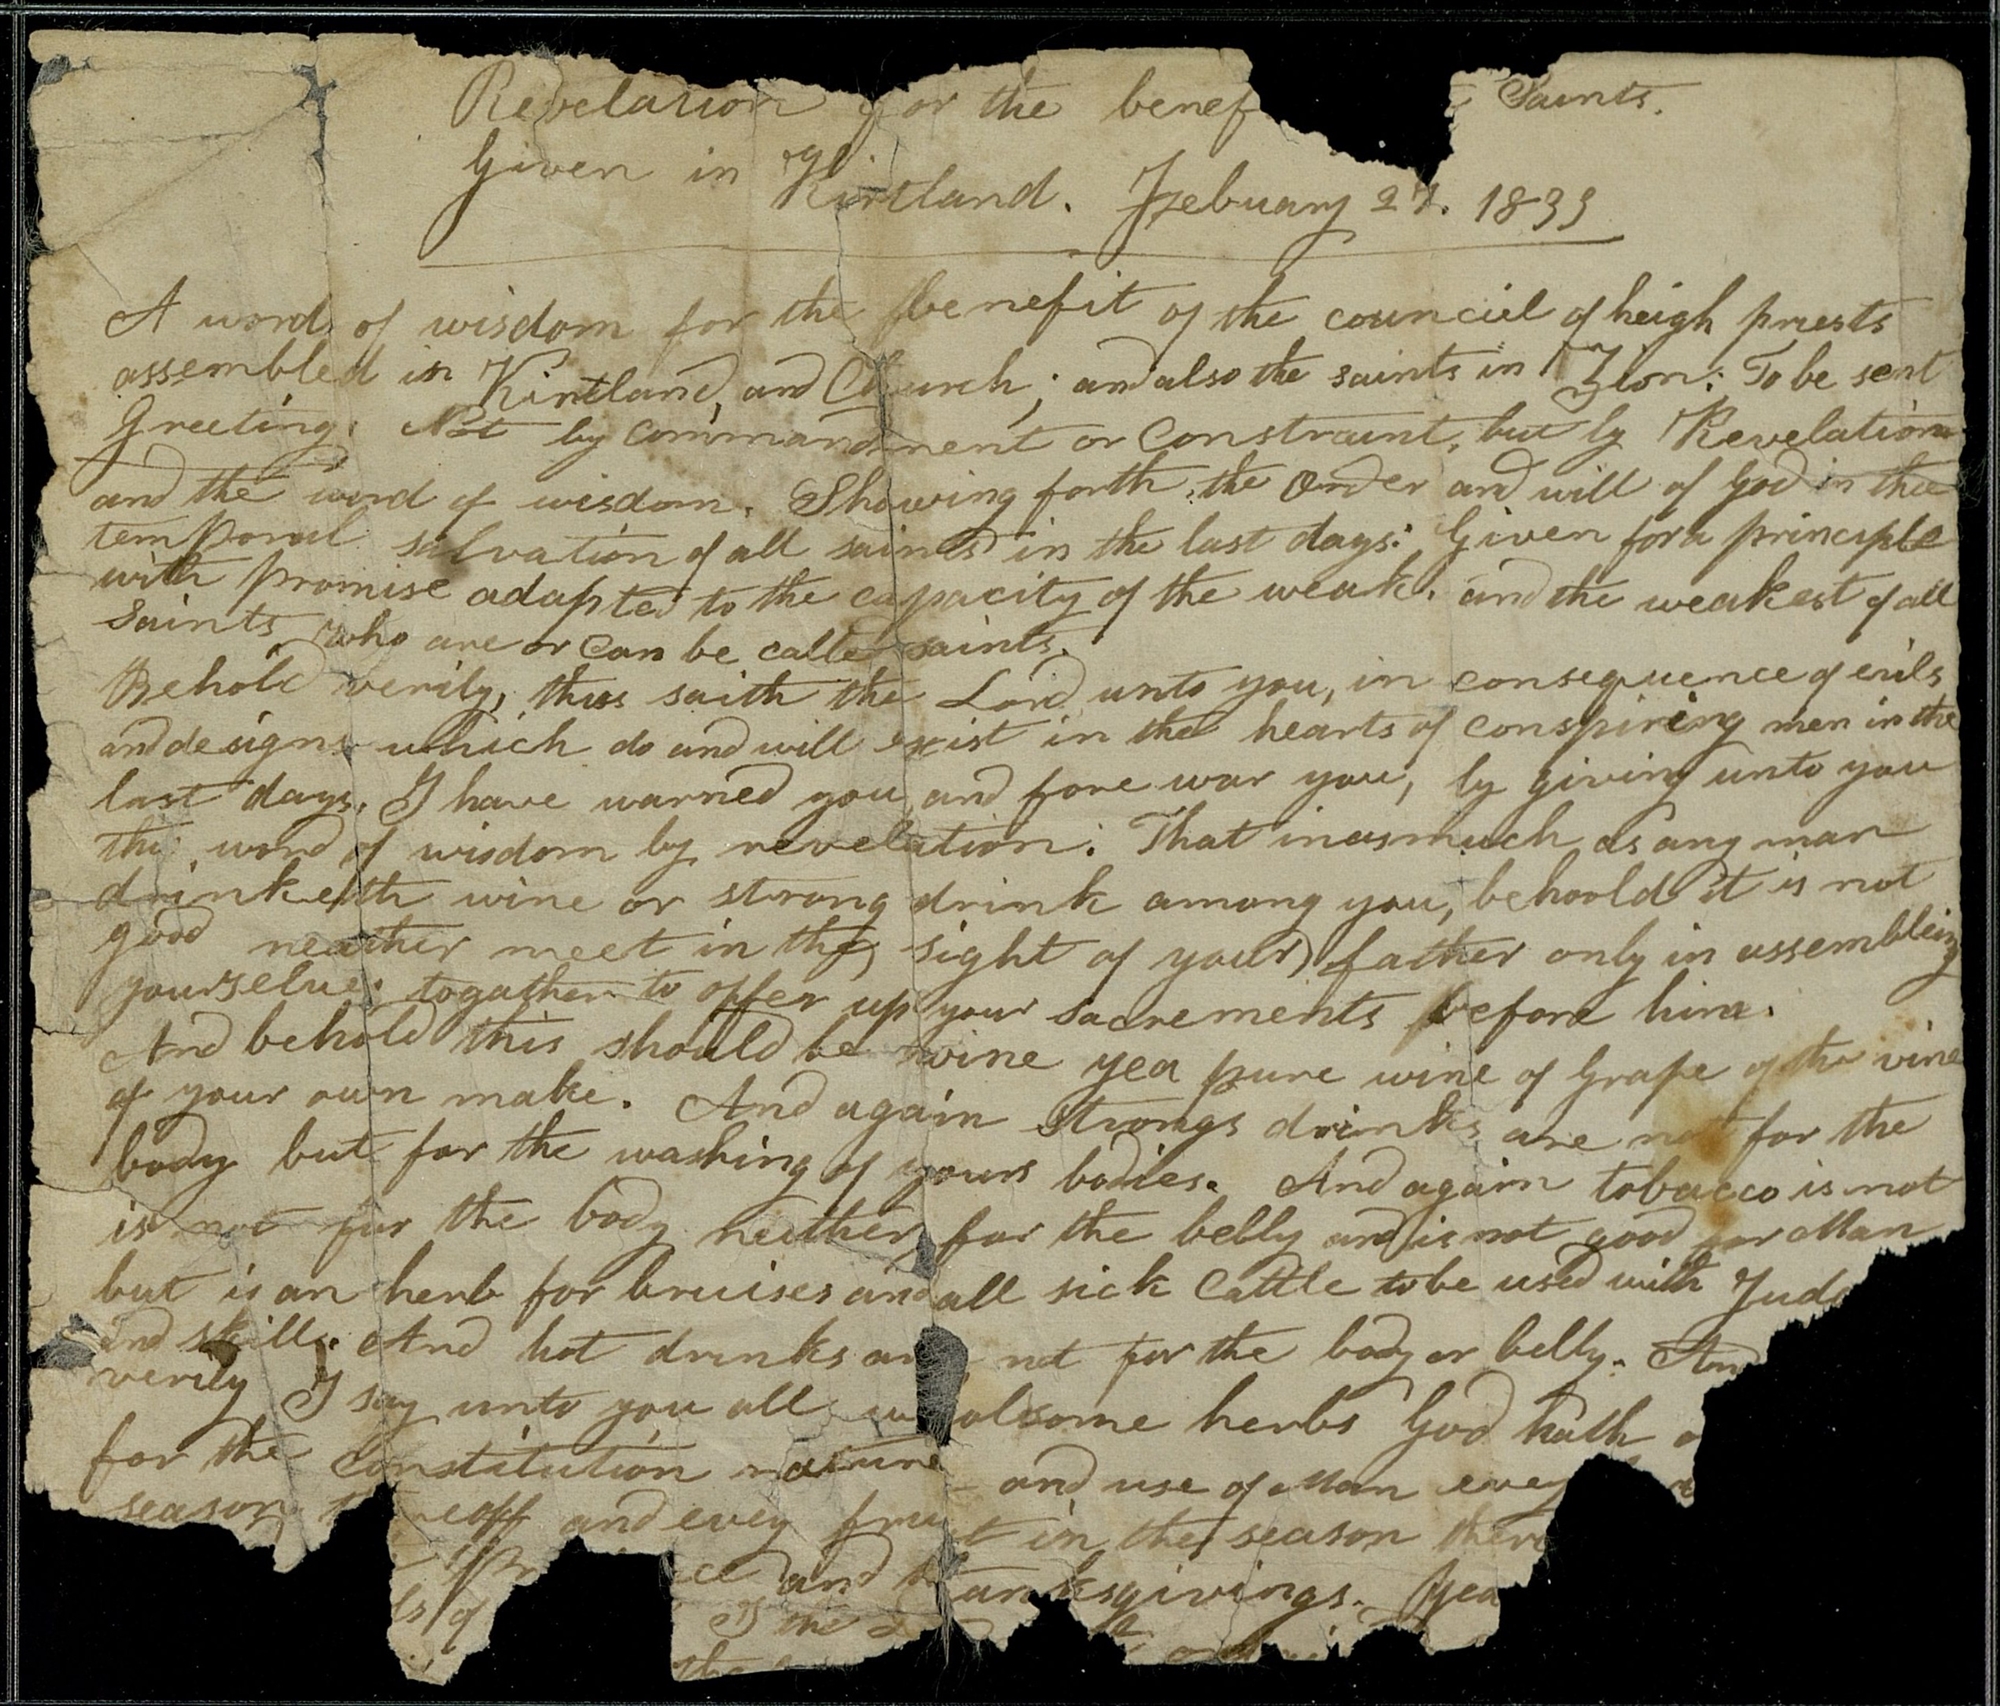 Revelation for the benef Saints.
Given in Kirtland. Febuary 27. 1833
A word of wisdom for the benefit of the counciel of heigh priests
assembled in Kirtland, and Church; and also the saints in Zion: To be sent
Greeting: Not by commandment or Constraint, but by Revelation
and the word of wisdom. Showing forth the Order and will of God in the
temporal salvation of all saints in the last days: Given for a principle
with promise adapted to the capacity of the weak. and the weakest of all
Saints who are or can be called saints.
Behold verily, thus saith the Lord unto you, in consequence of evils
and designs which do and will exist in the hearts of conspiring men in the
last days. I have warned you and fore war you, by giving unto you
this word of wisdom by revelation: That inasmuch as any man
drinketh wine or strong drink among you, behoold it is not
good neather meet in the sight of your father only in assembleing
yourselves togather to offer up your sacrements before him.
And behold this should be wine yea pure wine of Grape of the vine
of your own make. And again strongs drinks are not for the
body but for the washing of yours bodies. And again tobacco is not
is not for the body neither for the belly and is not good for Man
but is an herb for bruises and all sick Cattle to be used with Jud
and skill. And hot drinks are not for the body or belly. And
verily I say unto you all wholsome herbs God hath
for the constitution nature and use of Man evey
season thereoff and evey fruit in the season there
and thanksgivings. Yea
of I the
the